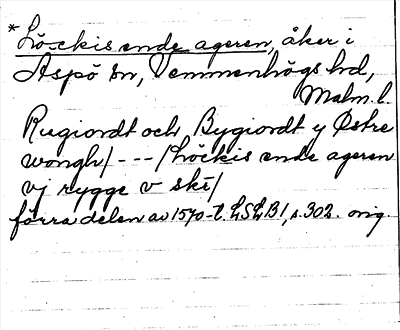 *Löckis ende ageren, åker i
Aspö sn, Vemmenhögs hd,
Malm. l.
Rugiordt och Bygiordt y Østre
wongh/ - - - /Löckis ende ageren
vj rygge v skē/
förra delen av 1570-t. LSLB1, s. 302. orig.